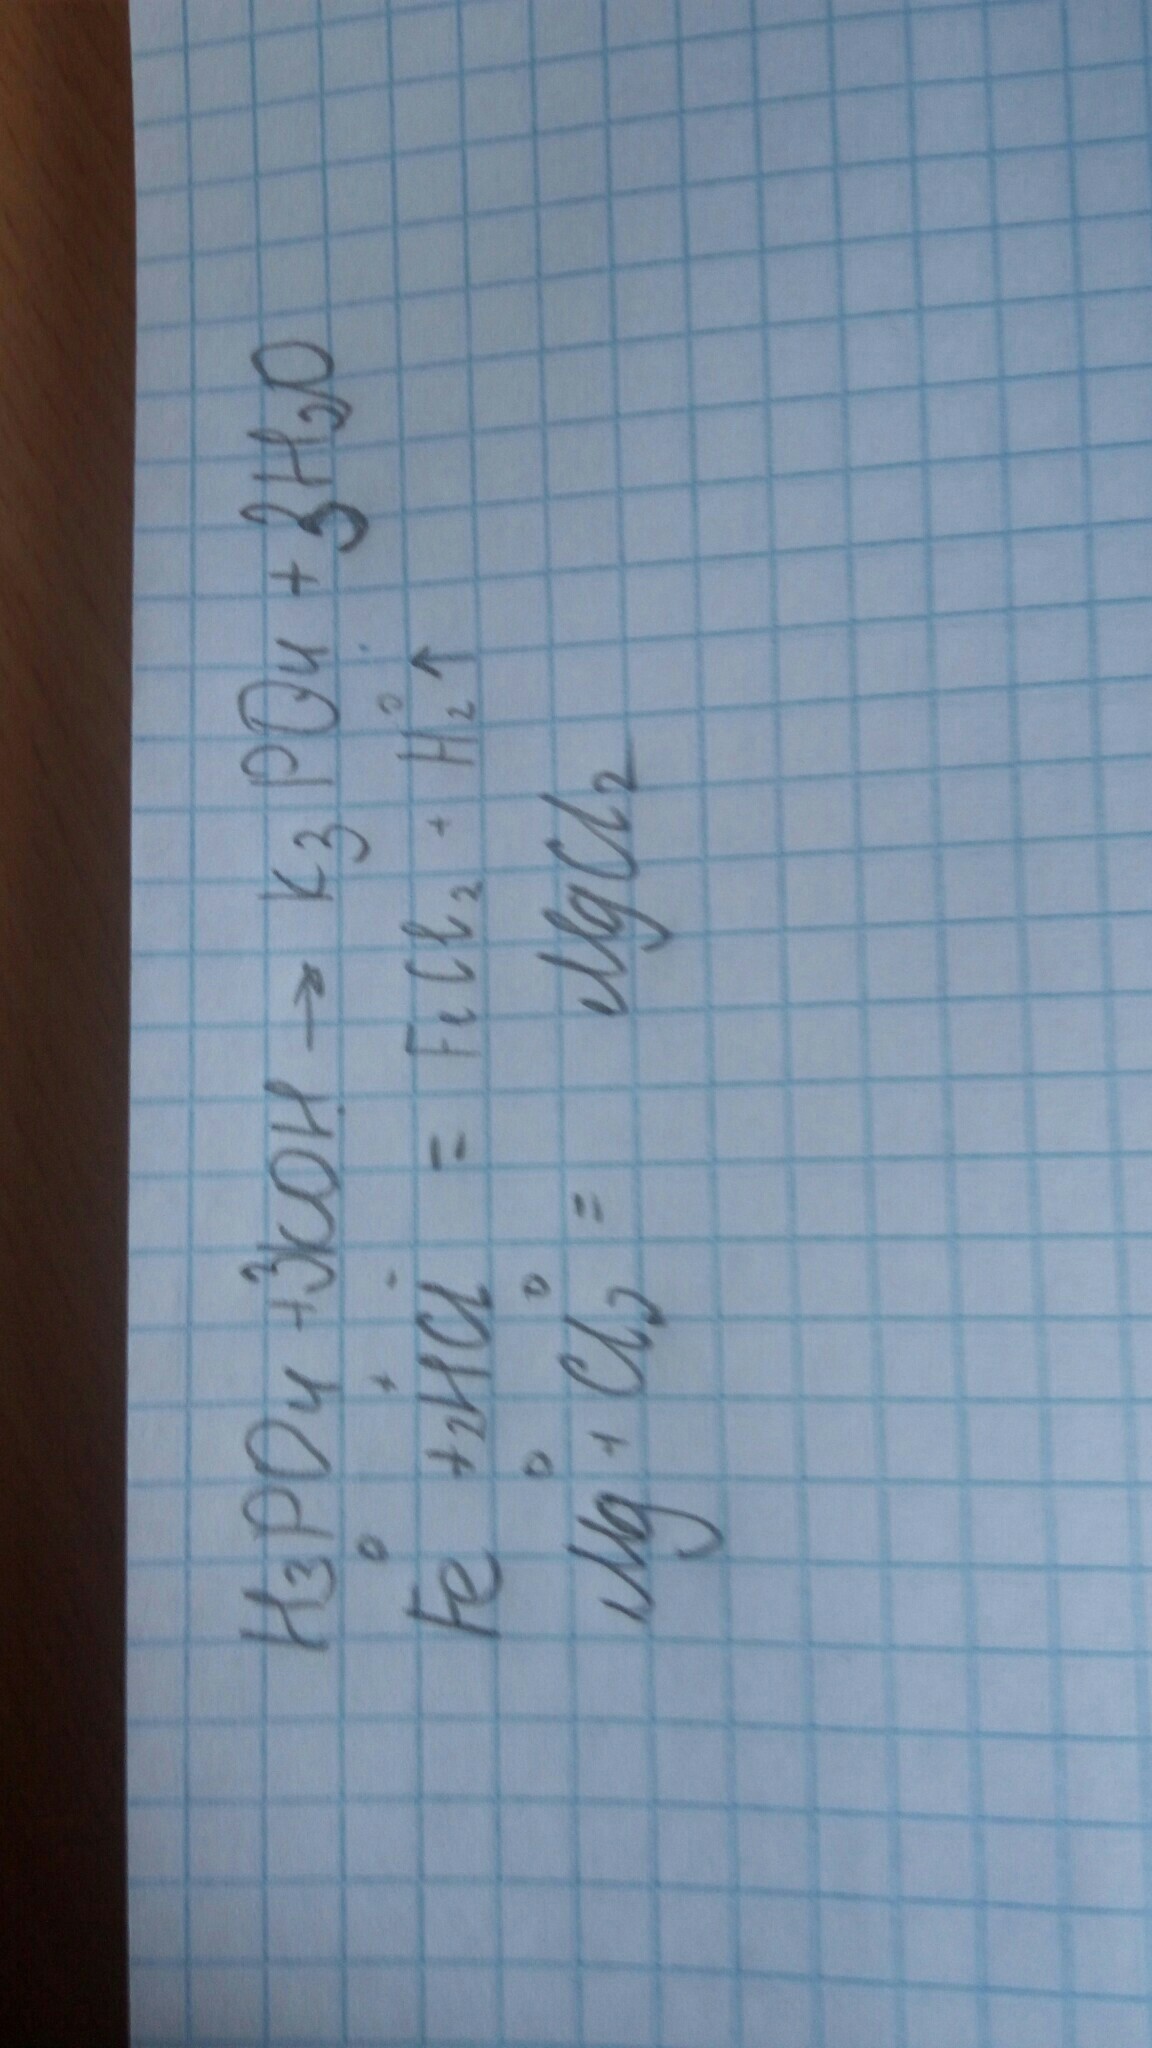 H₃PO₄ + 3KOH → K₃PO₄ + 3H₂O
Fe⁰ + 2H⁺Cl⁻ = FeCl₂ + H₂⁰↑
Mg⁰ + Cl₂⁰ = MgCl₂